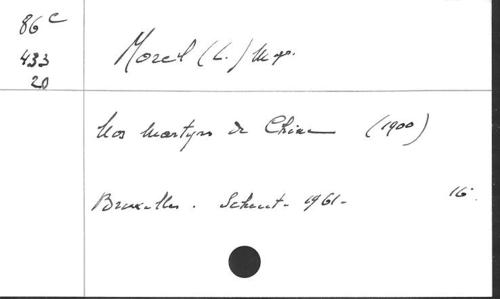 86 C
433
20
Morel (L.) Mgr.
Nos Martyrs de Chine (1900)
Bruxelles. Scheut. 1961. 16°